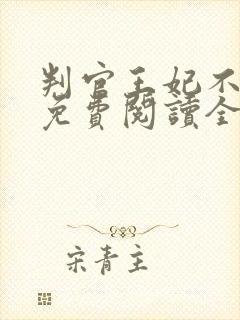 判官王妃不
免費閱讀全
宋青主